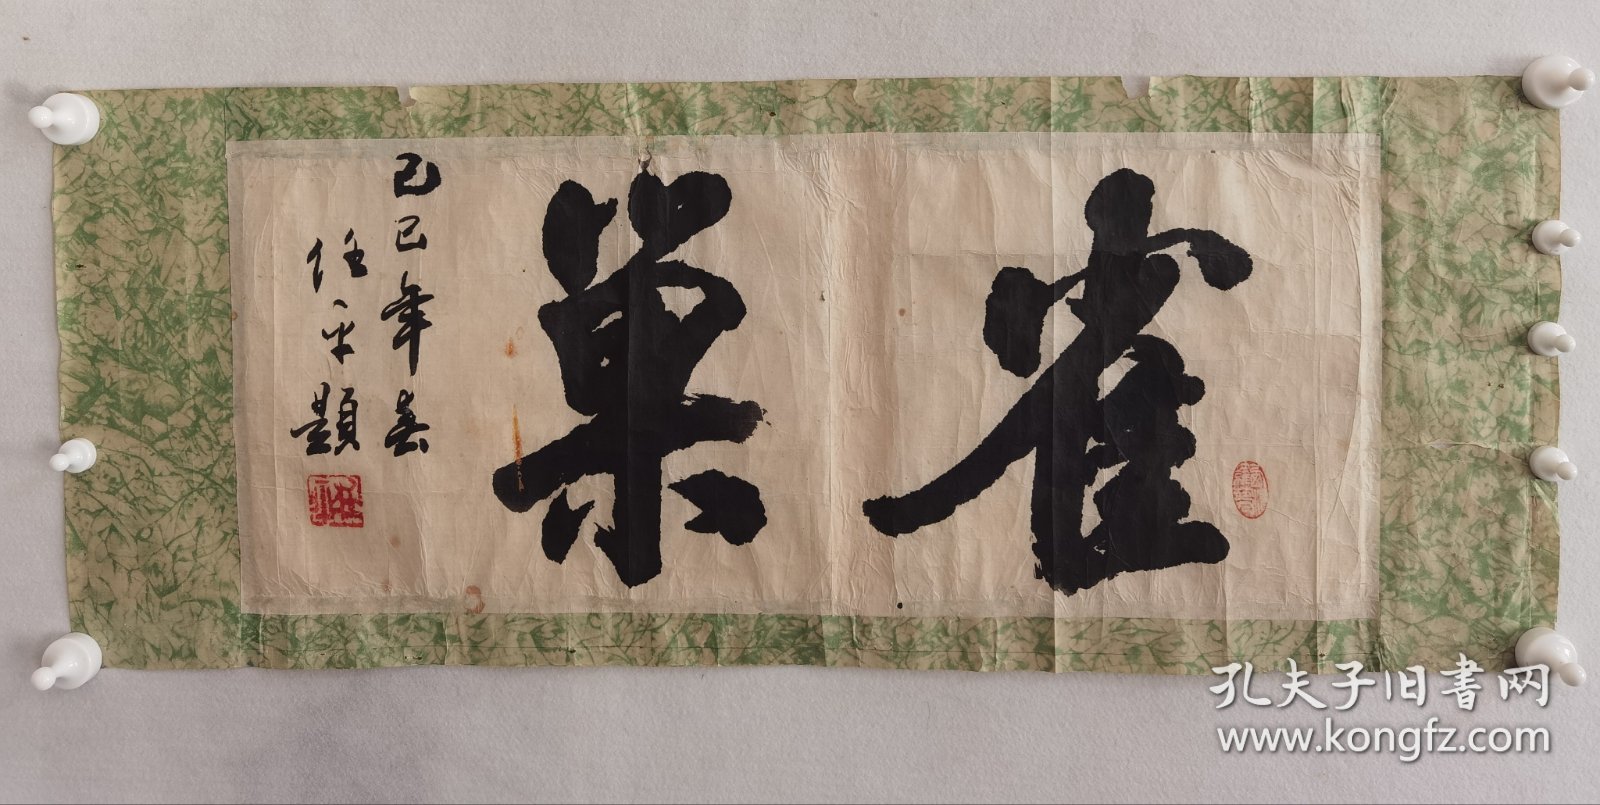 雀巢
己巳年春
任平題
孔夫子旧書网
www.kongfz.com